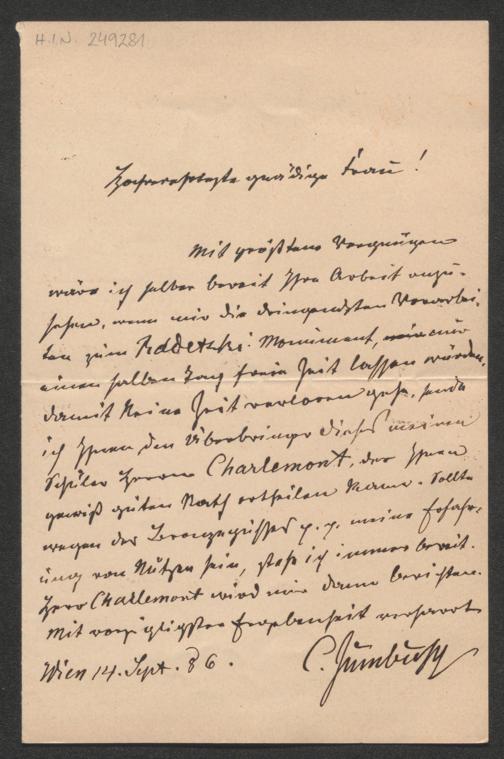 H.I.N. 249281
Hochverehrteste gnädige Frau!
Mit größtem Vergnügen
wäre ich selber bereit Ihre Arbeit anzu-
sehen, wenn mir die dringendsten Vorarbei-
ten zum Radetzki-Monument, nur
einen halben Tag freie Zeit lassen würden,
damit keine Zeit verloren geht, sende
ich Ihnen den Überbringer dieses meinen
Schüler Herrn Charlemont, der Ihnen
gewiß guten Rath ertheilen kann. Sollte
wegen des Bronzegusses p. p. meine Erfahr-
ung von Nützen sein, stehe ich immer bereit.
Herr Charlemont wird mir dann berichten.
Mit vorzüglichster Ergebenheit verharrt
Wien 14. Sept. 86. C. Zumbusch